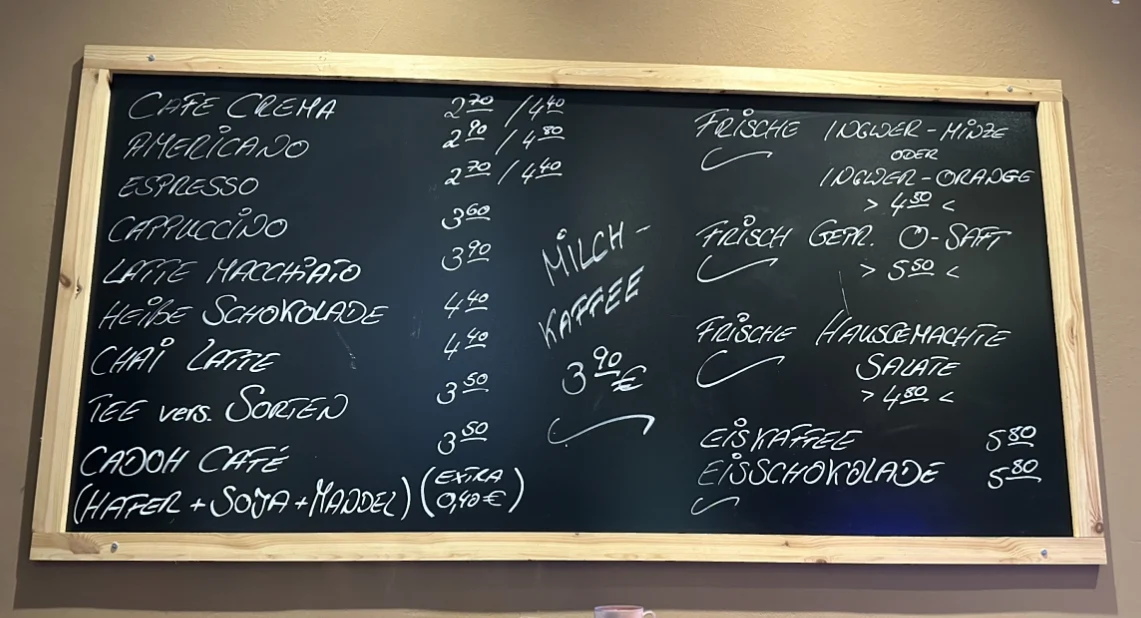 CAFE CREMA 2,70 / 4,40
AMERICANO 2,90 / 4,80
ESPRESSO 2,70 / 4,40
CAPPUCCINO 3,60
LATTE MACCHIATO 3,90
HEIßE SCHOKOLADE 4,40
CHAI LATTE 4,40
TEE vers. SORTEN 3,50
CADOH CAFÉ 3,50
(HAFER + SOJA + MANDEL) (EXTRA
0,40 €)
MILCH-
KAFFEE
3,90 €
FRISCHE INGWER-MINZE
ODER
INGWER-ORANGE
> 4,50 <
FRISCH GEPR. O-SAFT
> 5,50 <
FRISCHE HAUSGEMACHTE
SALATE
> 4,80 <
EISKAFFEE 5,80
EISSCHOKOLADE 5,80